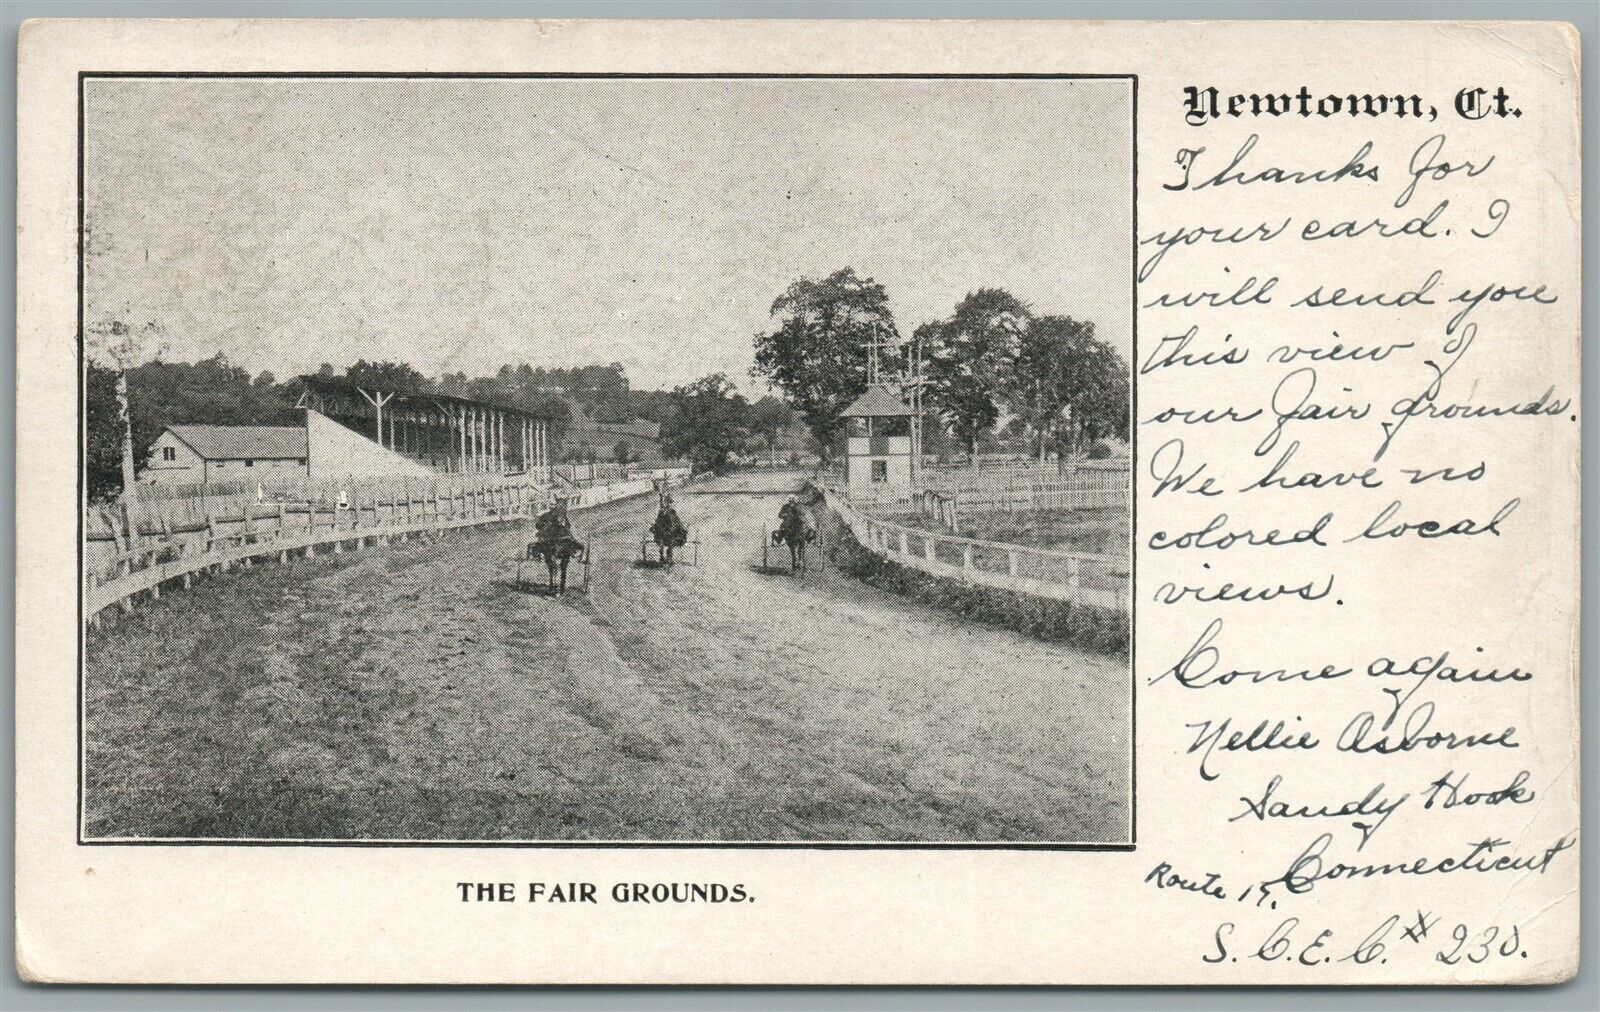 Newtown, Ct.
Thanks for
your card. I
will send you
this view of
our fair grounds.
We have no
colored local
views.
Come again
Nellie Osborne
Sandy Hook
Connecticut
Route 17.
S. C. E. C. # 230.
THE FAIR GROUNDS.